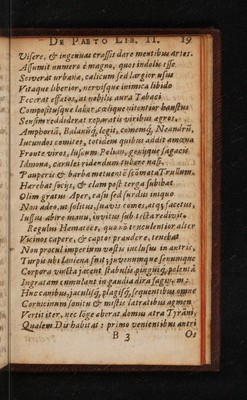 DE PAETO LIB. II. 19
Visere, & ingenius crassis dare mentibus artes.
Assumit numero è magno, quos indolis esse
Sciverat urbana, calicum sed largior usus
Vitaque liberior, nervosque inimica libido
Fecerat effœtos, at nobilis aura Tabaci
Compositusque labor, cocique nitentior haustus
Sensim reddiderat reparatis viribus agros.
Iucundos comites, totidem quibus addit amœna
Fronte viros, luscum Pelium, genuque sagacem
Idmona, cerulei ridendum tubere nasi.
Pauperis & barba metuentẽ stõmata Trullum.
Herebat socijs, & clam post terga subibat
Olim gratus Aper, casu sed surdus iniquo
Non adeo, ut solitus, suavis comes, atq; facetus,
Iussus abire manu, invitus sub tecta redivit.
Regulus Hamatees, quo nõ truculentior alter
Vicinos capere, & captos prandere, tenebat
Non procul imperium vastis inclusus in antris,
Turpis ubi laniena fuit; juvenumque senumque
Corpora vincta jacent stabulis, pinguiq; polenta
Ingratam cumulant in gaudia dira saginam;
Huc canibus, jaculisq́; plagisq́; sequentibus omne
Cornicinum sonitu & mistis latratibus agmen
Vertit iter, nec lõge aberat domus atra Tyrãni,
Qualem Dis habitat: primo venientibus antri
B 3 Os